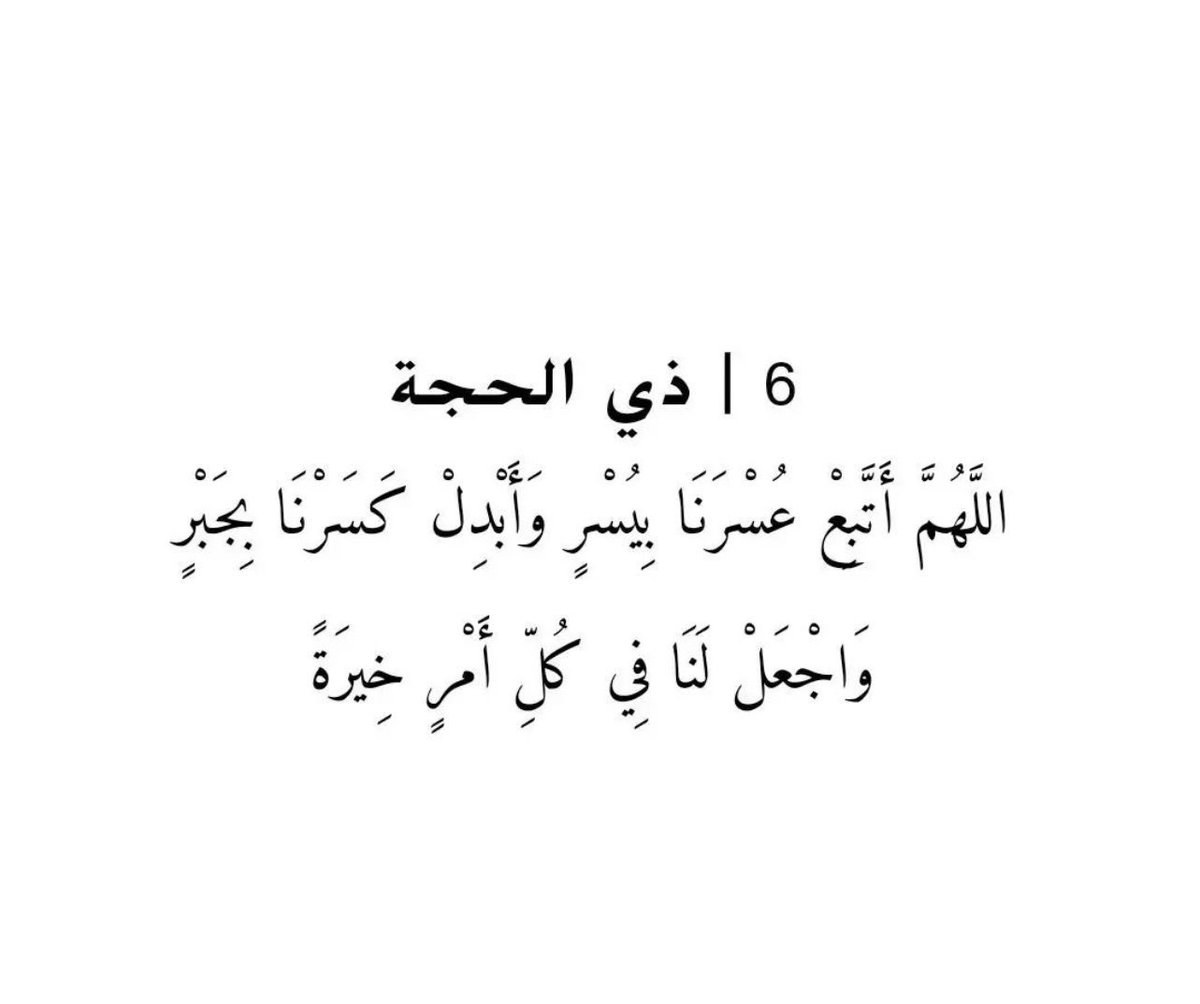 6 | ذي الحجة
اللَّهُمَّ أَتَّبِعْ عُسْرَنَا بِيُسْرٍ وَأَبْدِلْ كَسَرْنَا بِجَبْرٍ
وَاجْعَلْ لَنَا فِي كُلِّ أَمْرٍ خِيرَةً